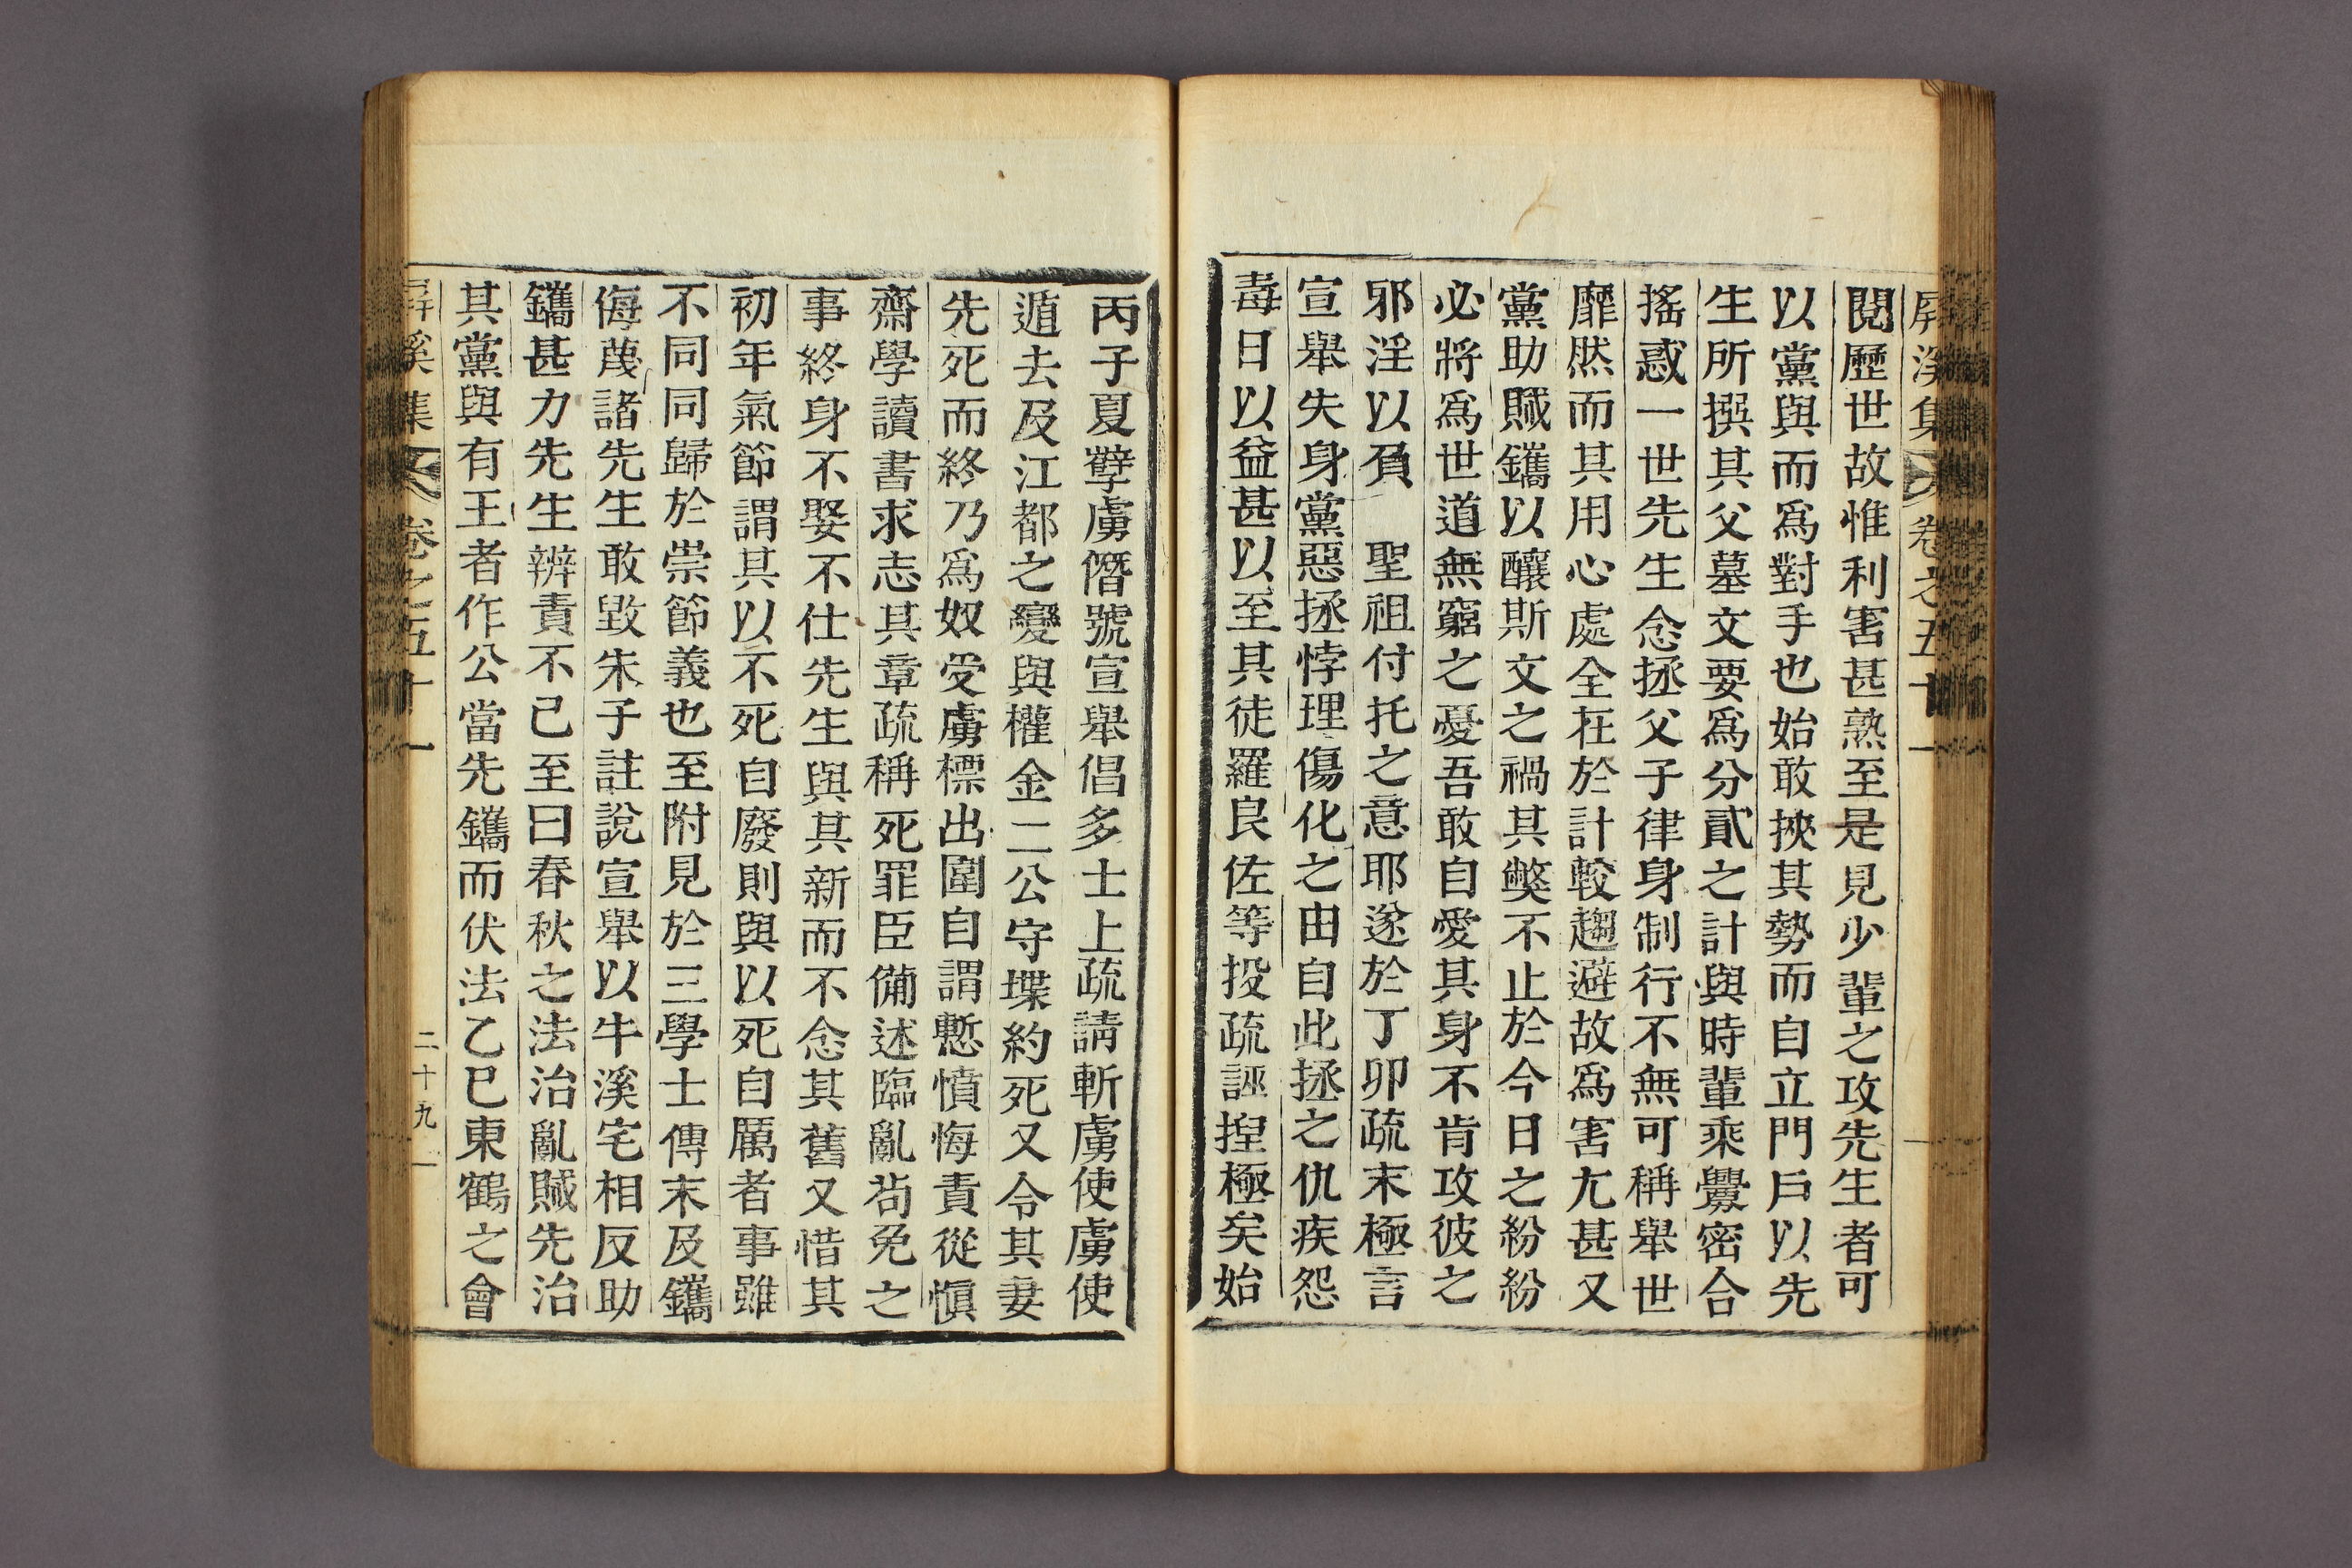 屛溪集 卷之五十一
閱歷世故惟利害甚熟至是見少輩之攻先生者可
以黨與而爲對手也始敢挾其勢而自立門戶以先
生所撰其父墓文要爲分貳之計與時輩乘釁密合
搖惑一世先生念拯父子律身制行不無可稱舉世
靡然而其用心處全在於計較趨避故爲害尤甚又
黨助賊鑴以釀斯文之禍其弊不止於今日之紛紛
必將爲世道無窮之憂吾敢自愛其身不肯攻彼之
邪淫以負　聖祖付托之意耶遂於丁卯疏末極言
宣舉失身黨惡拯悖理傷化之由自此拯之仇疾怨
毒日以益甚以至其徒羅良佐等投疏誣揑極矣始
丙子夏孼虜僭號宣舉倡多士上疏請斬虜使虜使
遁去及江都之變與權金二公守堞約死又令其妻
先死而終乃爲奴受虜標出圍自謂慙憤悔責從愼
齋學讀書求志其章疏稱死罪臣備述臨亂苟免之
事終身不娶不仕先生與其新而不念其舊又惜其
初年氣節謂其以不死自廢則與以死自厲者事雖
不同同歸於崇節義也至附見於三學士傳末及鑴
侮蔑諸先生敢毀朱子註說宣舉以牛溪宅相反助
鑴甚力先生辨責不已至曰春秋之法治亂賊先治
其黨與有王者作公當先鑴而伏法乙巳東鶴之會
屛溪集 卷之五十一 二十九